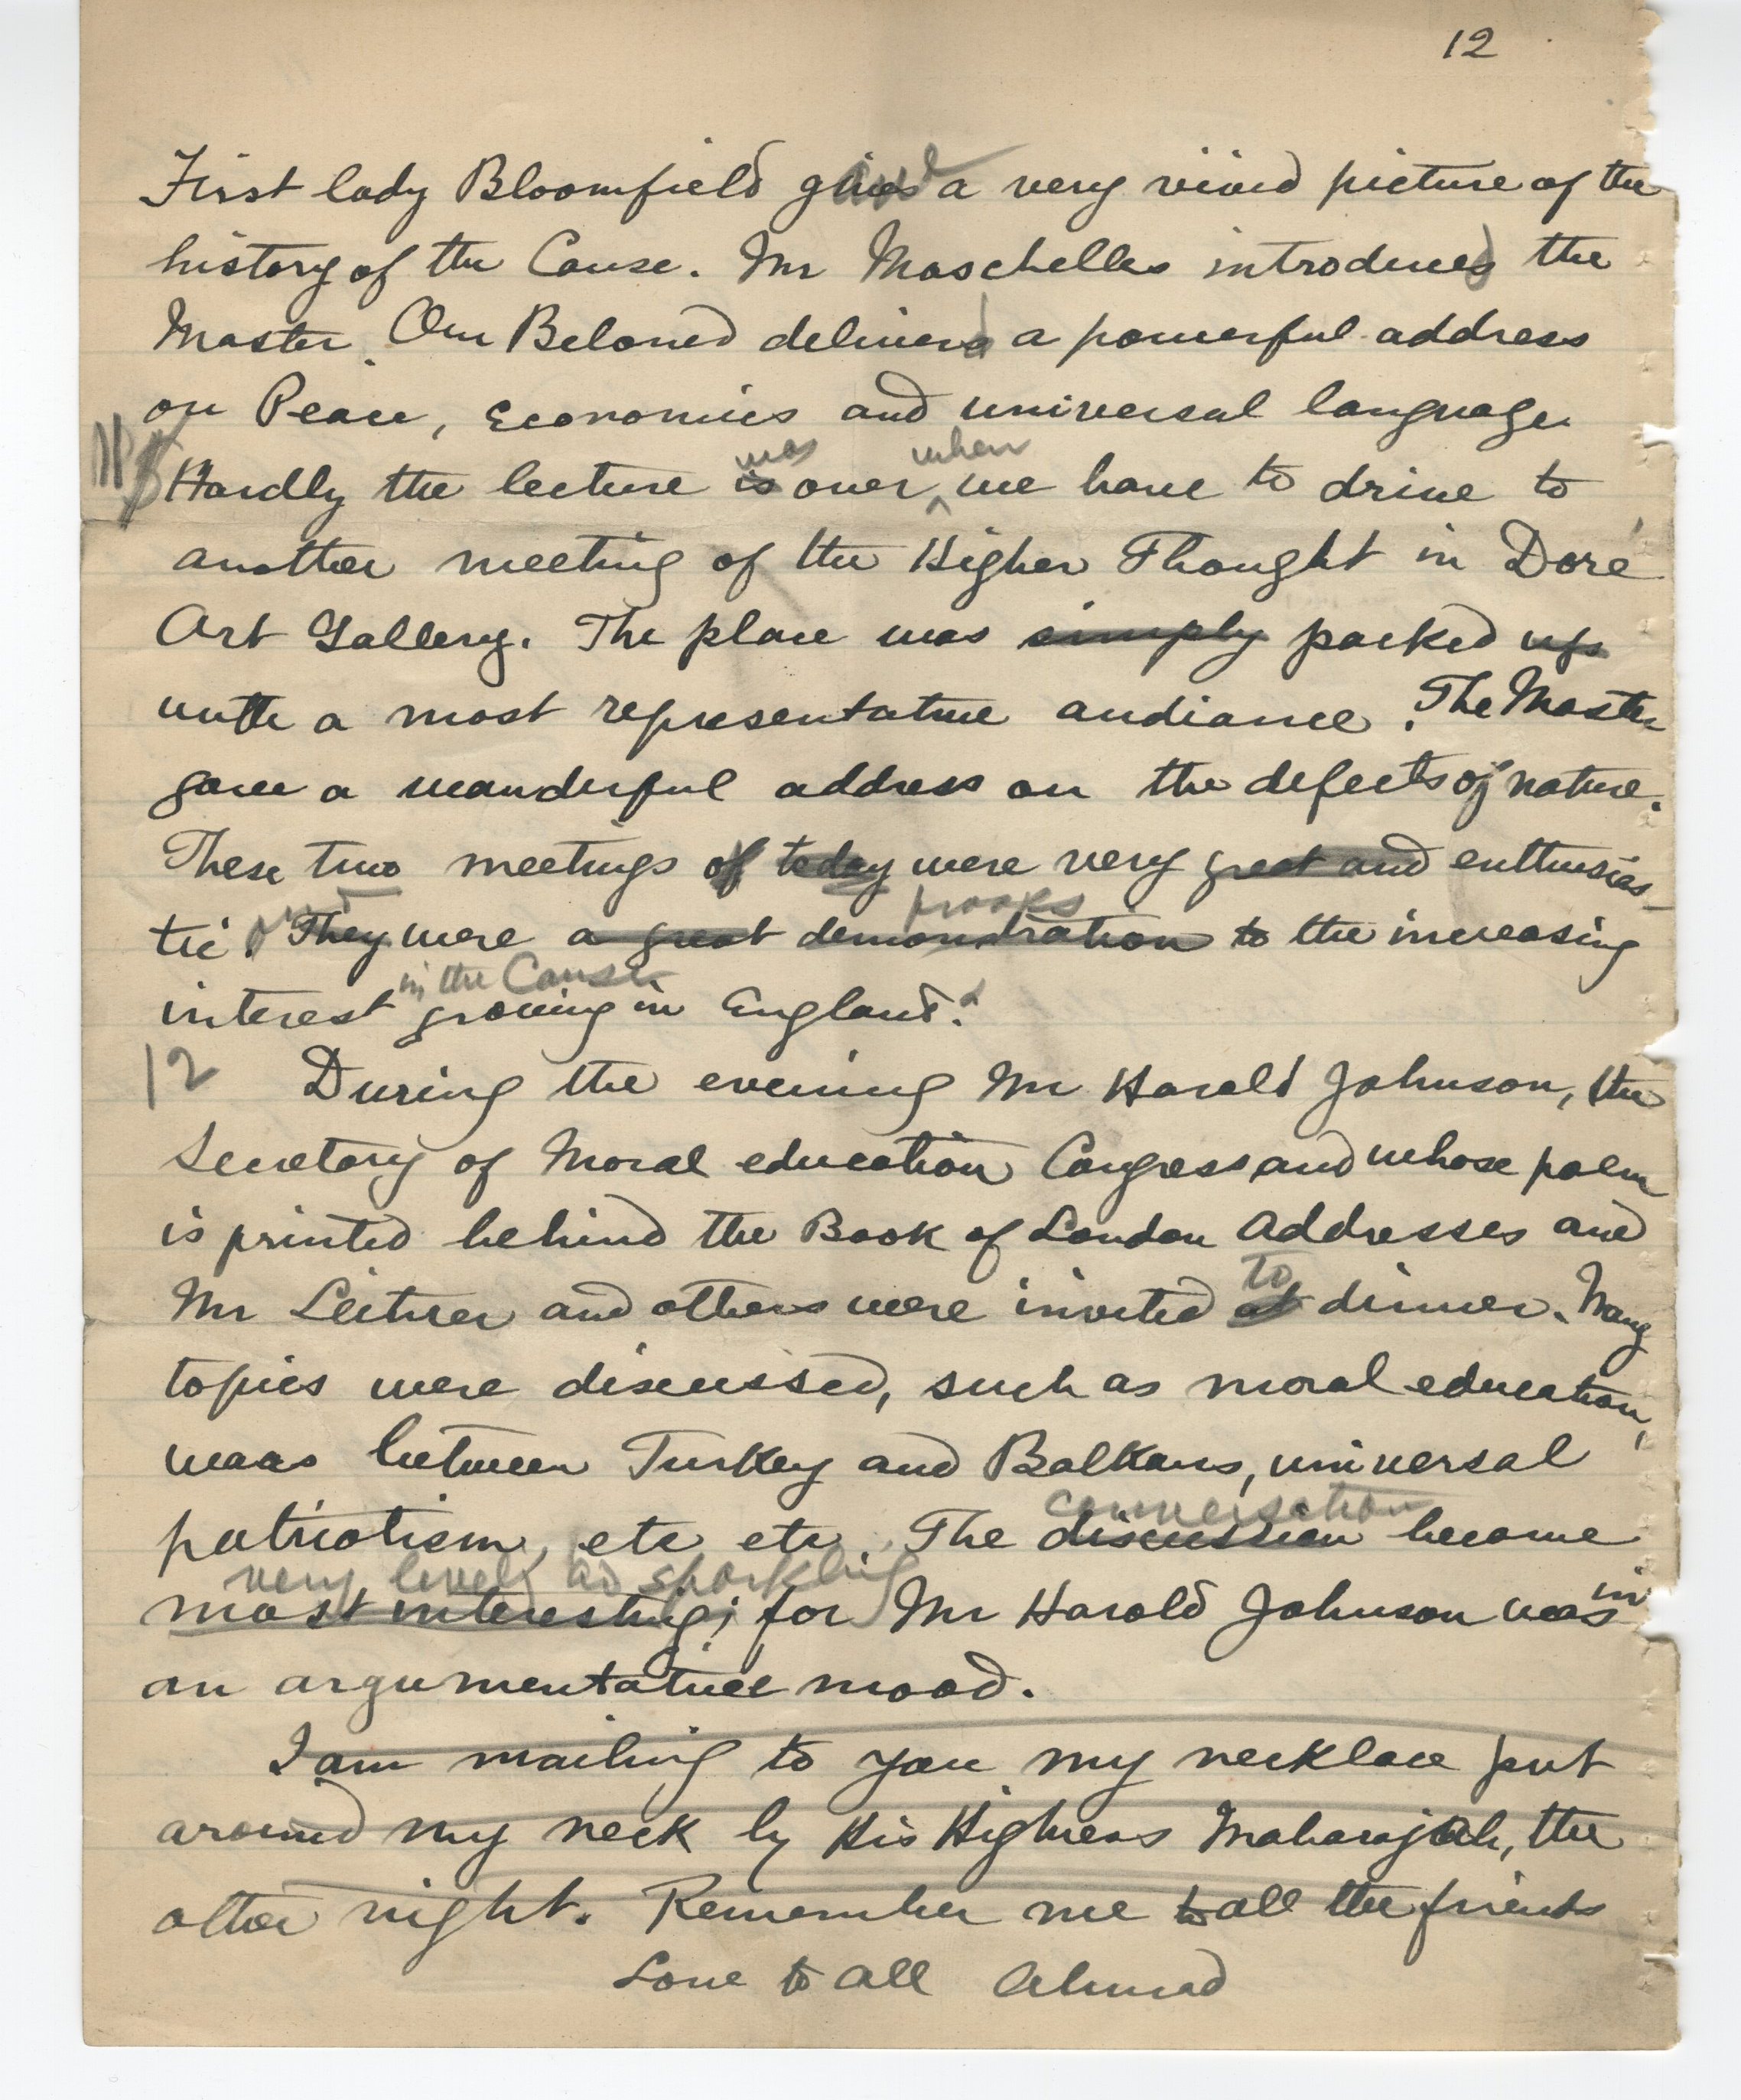 12
First lady Bloomfield gave a very vivid picture of the
history of the Cause. Mr Moschelles introduced the
Master. Our Beloved delivered a powerful address
on Peace, Economics and universal language.
was when
Hardly the lecture is over, we have to drive to
another meeting of the Higher Thought in Doré
Art Gallery. The place was simply packed up
with a most representative audiance. The Master
gave a wanderful address on the defects of nature.
These two meetings of today were very great and enthusias-
and proofs
tic. They were a great demonstration to the increasing
in the Cause
interest growing in England.
12 During the evening Mr Harold Johnson, the
Secretary of Moral education Congress and whose poem
is printed behind the Book of London Addresses and
to
Mr Leitner and others were invited at dinner. Many
topics were discussed, such as moral education,
waas between Turkey and Balkans, universal
conversation
patriotism, etc etc. The discussion became
very lively and sparkling in
most interesting; for Mr Harold Johnson was
an argumentative mood.
I am mailing to you my necklace put
around my neck by His Highness Maharajah, the
other night. Remember me to all the friends
Love to all Ahmad